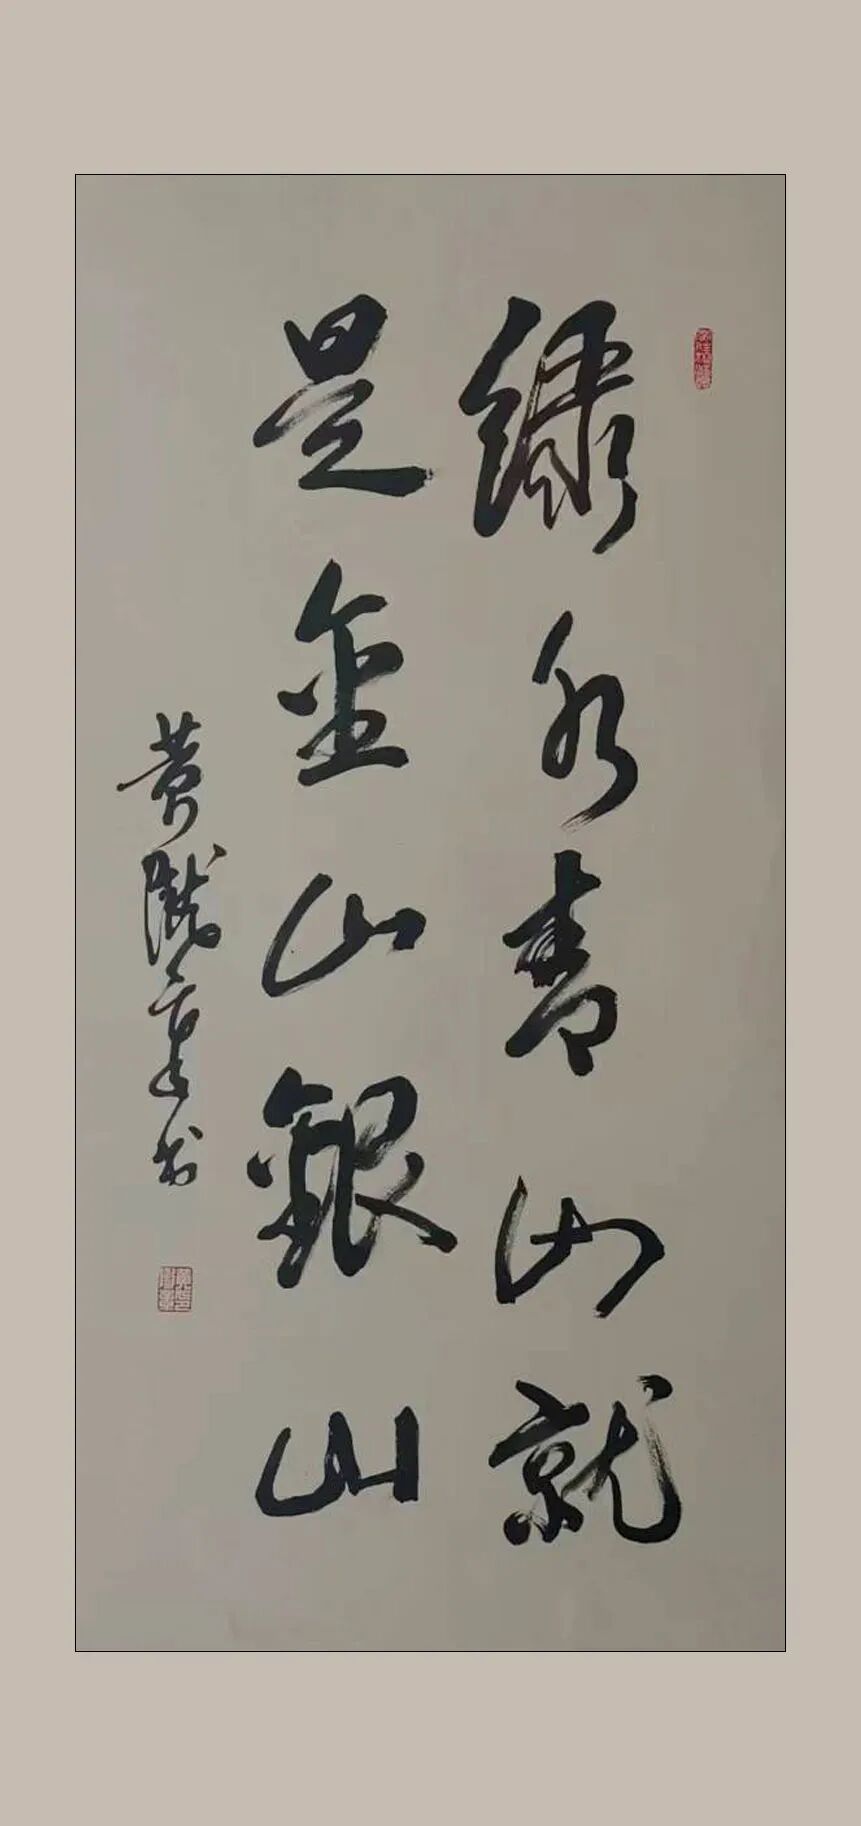 绿水青山就
是金山銀山
黄 书